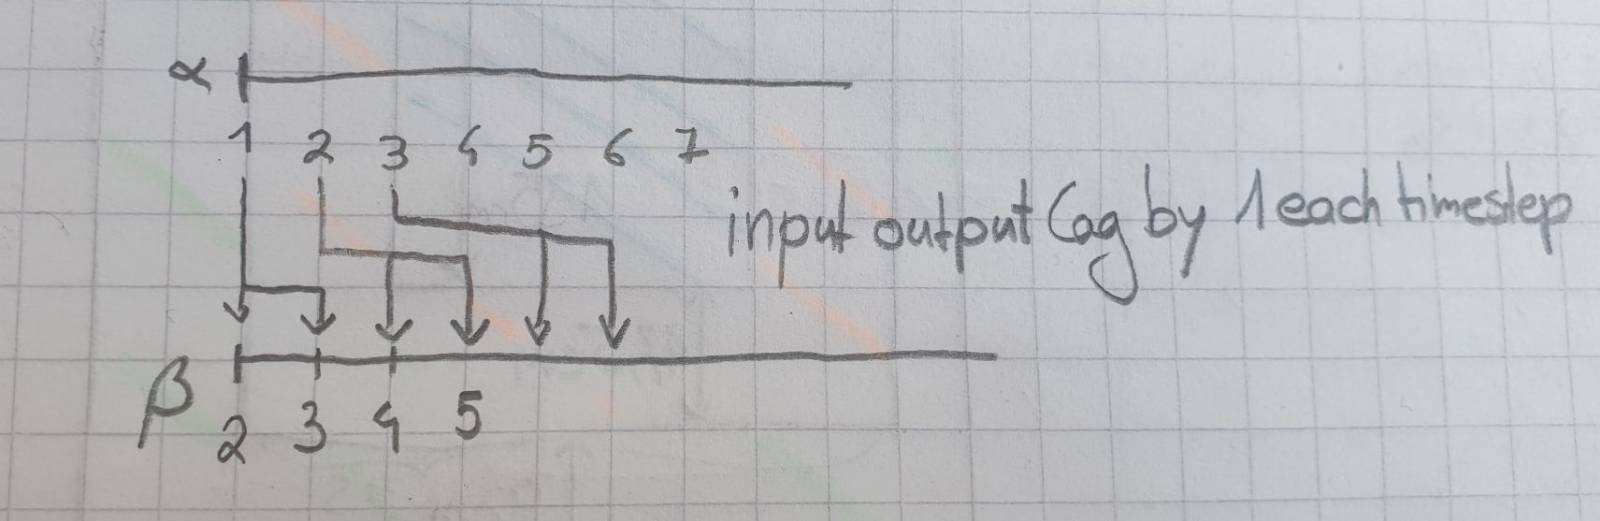 α
1 2 3 4 5 6 7
input output lag by 1 each timestep
β
2 3 4 5